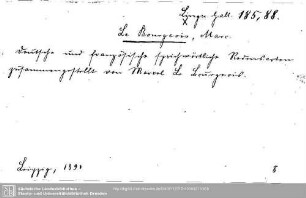 Lingu. Gall. 185, 88.
Le Bourgeois, Marc.
Deutsche und französische sprichwörtliche Redensarten
zusammengestellt von Marcel Le Bourgeois.
Leipzig, 1891
8
Sächsische Landesbibliothek -
Staats- und Universitätsbibliothek Dresden